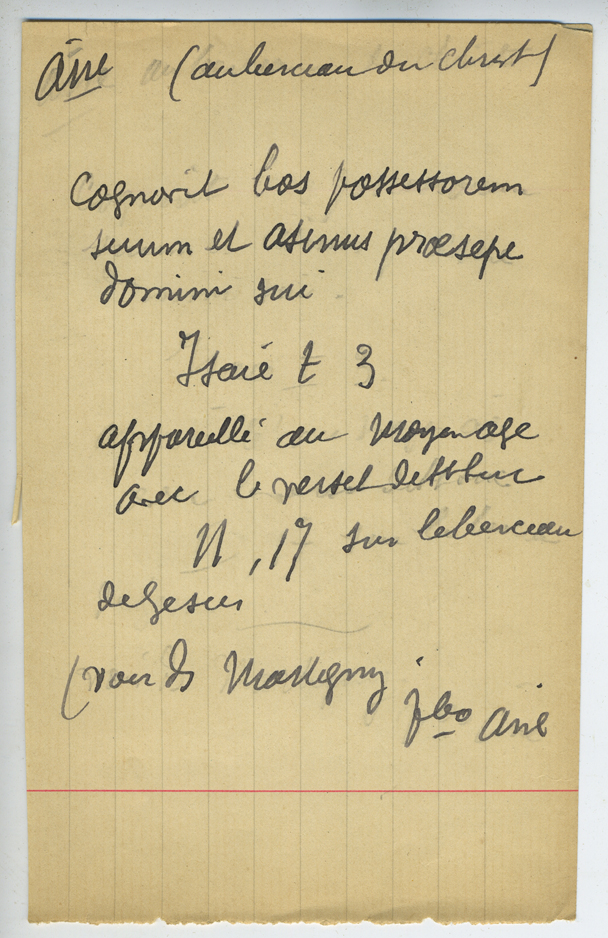 âne (au berceau du Christ)
Cognovit bos possessorem
suum et asinus præsepe
domini sui
Isaïe I 3
appareillé au moyen age
avec le verset de St Luc
II, 17 sur le berceau
de Jesus
(voir ds Martigny
vbo âne